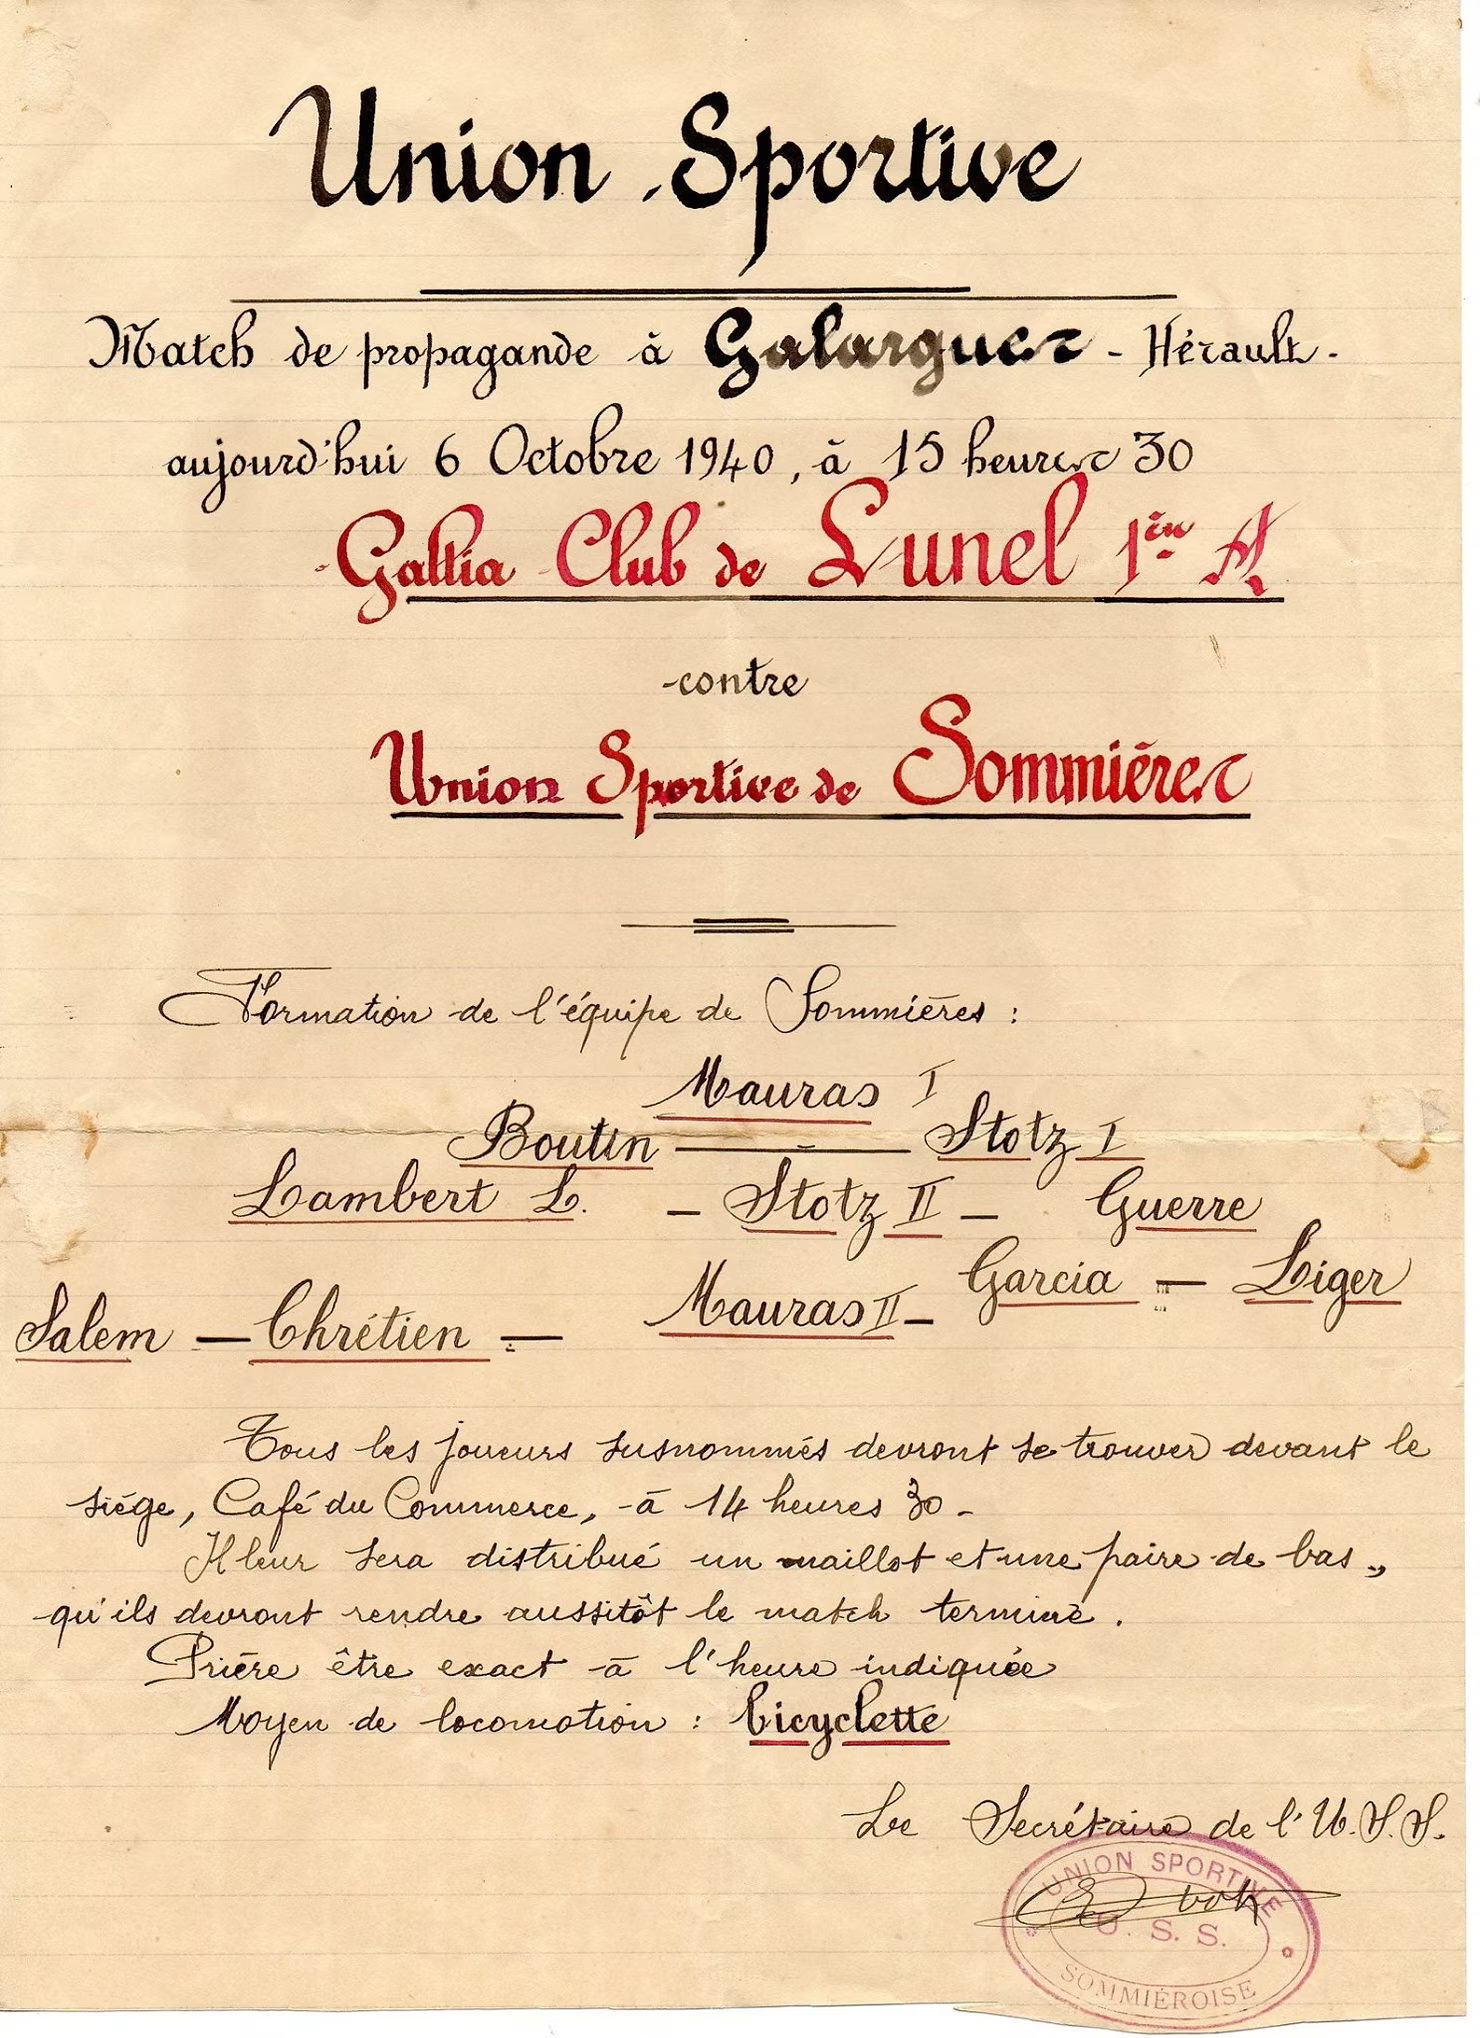 Union Sportive
Match de propagande à Galargues - Hérault -
aujourd'hui 6 Octobre 1940, à 15 heures 30
Gallia Club de Lunel 1ère A
contre
Union Sportive de Sommières
Formation de l'équipe de Sommières :
Mauras I
Boutin — Stotz I
Lambert L. - Stotz II - Guerre
Salem — Chrétien — Mauras II - Garcia — Liger
Tous les joueurs susnommés devront se trouver devant le
siége, Café du Commerce, à 14 heures 30 -
Il leur sera distribué un maillot et une paire de bas,
qu'ils devront rendre aussitôt le match terminé.
Prière être exact à l'heure indiquée
Moyen de locomotion : bicyclette
Le Secrétaire de l'U.S.S.
UNION SPORTIVE
U. S. S.
SOMMIÉROISE